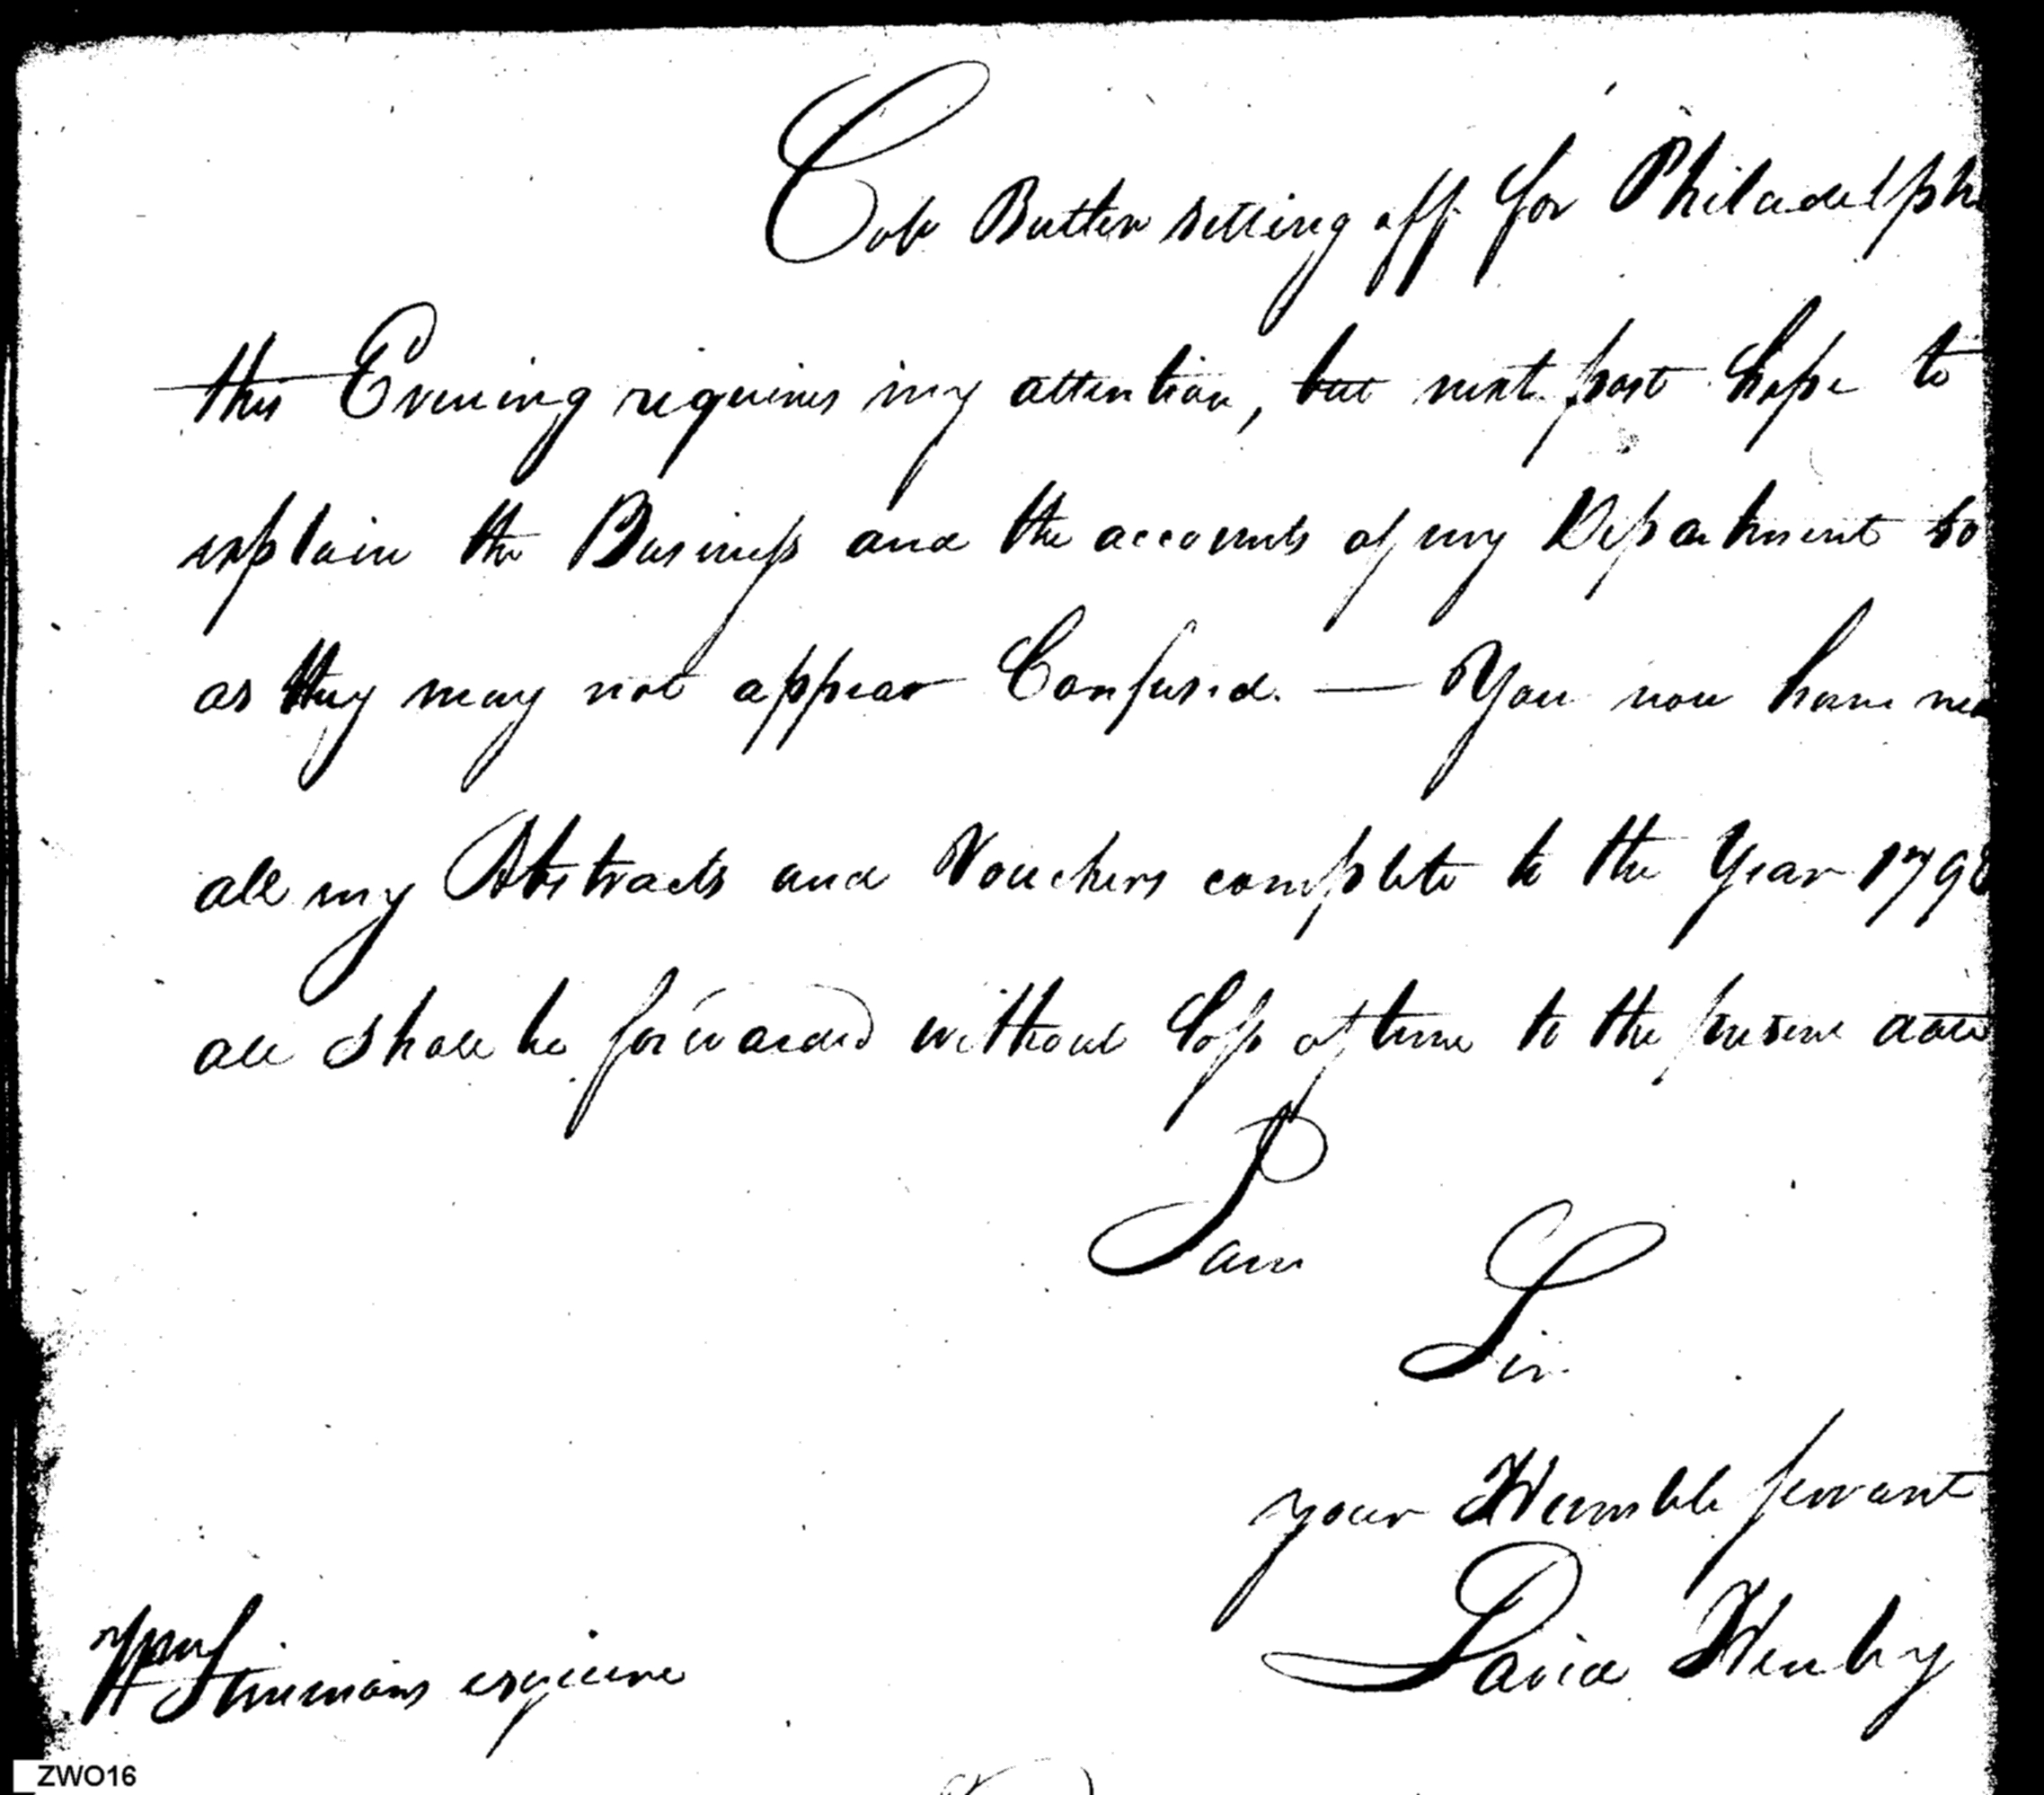 Colo Butler setting off for Philadelphi
this Evening requires my attention, but next post hope to
explain the Business and the accounts of my Department so
as they may not appear Confused. — You now have
all my Abstracts and Vouchers complete to the Year 179
all shall be forwarded without Loss of time to the present date
I am
Sir
your Humble servant
David Henley
Wm Simmons esquire
ZWO16